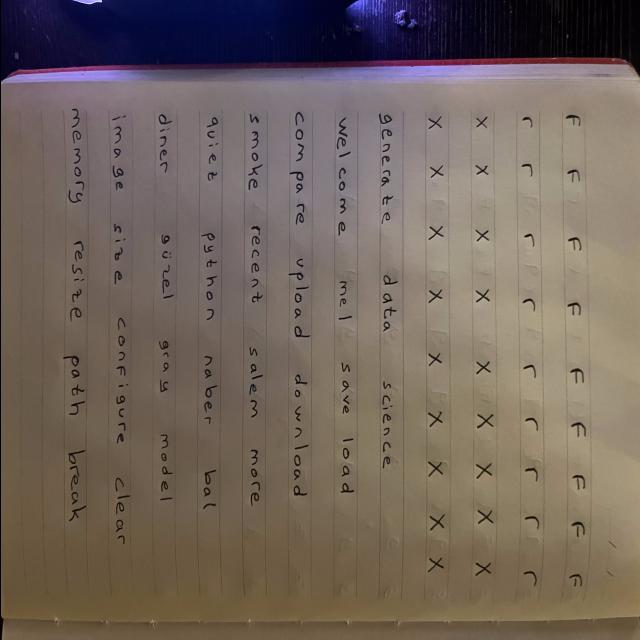 F F F F F F F F F
r r r r r r r r r
x x x x x x x x x
x x x x x x x x x
generate data science
welcome mel save load
compare upload download
smoke recent salem more
quiet python naber bal
diner güzel gray model
image size configure clear
memory resize path break